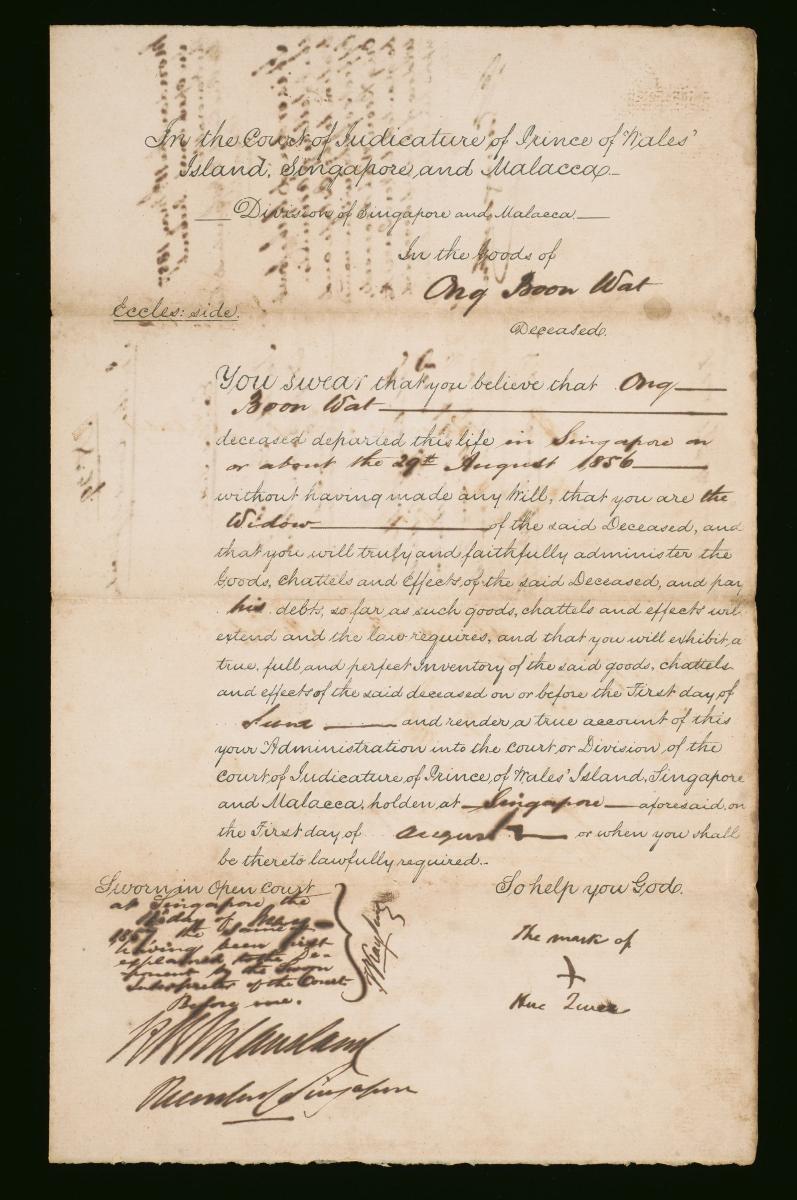 In the Court of Judicature of Prince of Wales'
Island, Singapore, and Malacca
Division of Singapore and Malacca
In the Goods of
Ong Boon Wat
Eccles: side.
Deceased.
You swear that you believe that Ong
Boon Wat
deceased departed this life in Singapore on
or about the 29th August 1856
without having made any Will, that you are the
Widow of the said Deceased, and
that you will truly and faithfully administer the
Goods, Chattels and Effects, of the said Deceased, and pay
his debts, so far as such goods, chattels and effects will
extend and the law requires, and that you will exhibit, a
true, full, and perfect Inventory of the said goods, chattels
and effects of the said deceased on or before the First day of
June and render, a true account of this
your Administration into the Court, or Division, of the
Court of Judicature, of Prince, of Wales' Island, Singapore
and Malacca, holden, at Singapore aforesaid, on
the First day of August or when you shall
be thereto lawfully required.
Sworn in Open Court
So help you God.
at Singapore the
day of May
1857 the same
having been first
explained to the De-
ponent by the Sworn
Interpreter of the Court
Before me.
The mark of
Recorder Singapore